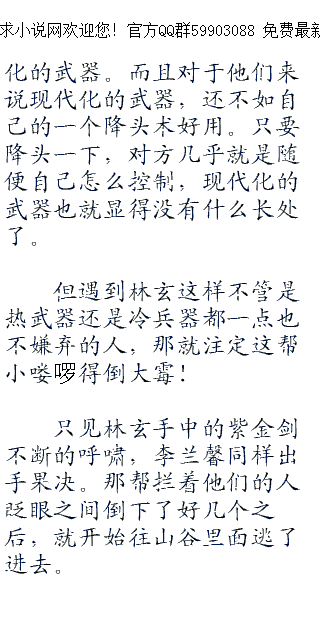 求小说网欢迎您！官方QQ群59903088 免费最新
化的武器。而且对于他们来
说现代化的武器，还不如自
己的一个降头术好用。只要
降头一下，对方几乎就是随
便自己怎么控制，现代化的
武器也就显得没有什么长处
了。
但遇到林玄这样不管是
热武器还是冷兵器都一点也
不嫌弃的人，那就注定这帮
小喽啰得倒大霉！
只见林玄手中的紫金剑
不断的呼啸，李兰馨同样出
手果决。那帮拦着他们的人
眨眼之间倒下了好几个之
后，就开始往山谷里面逃了
进去。